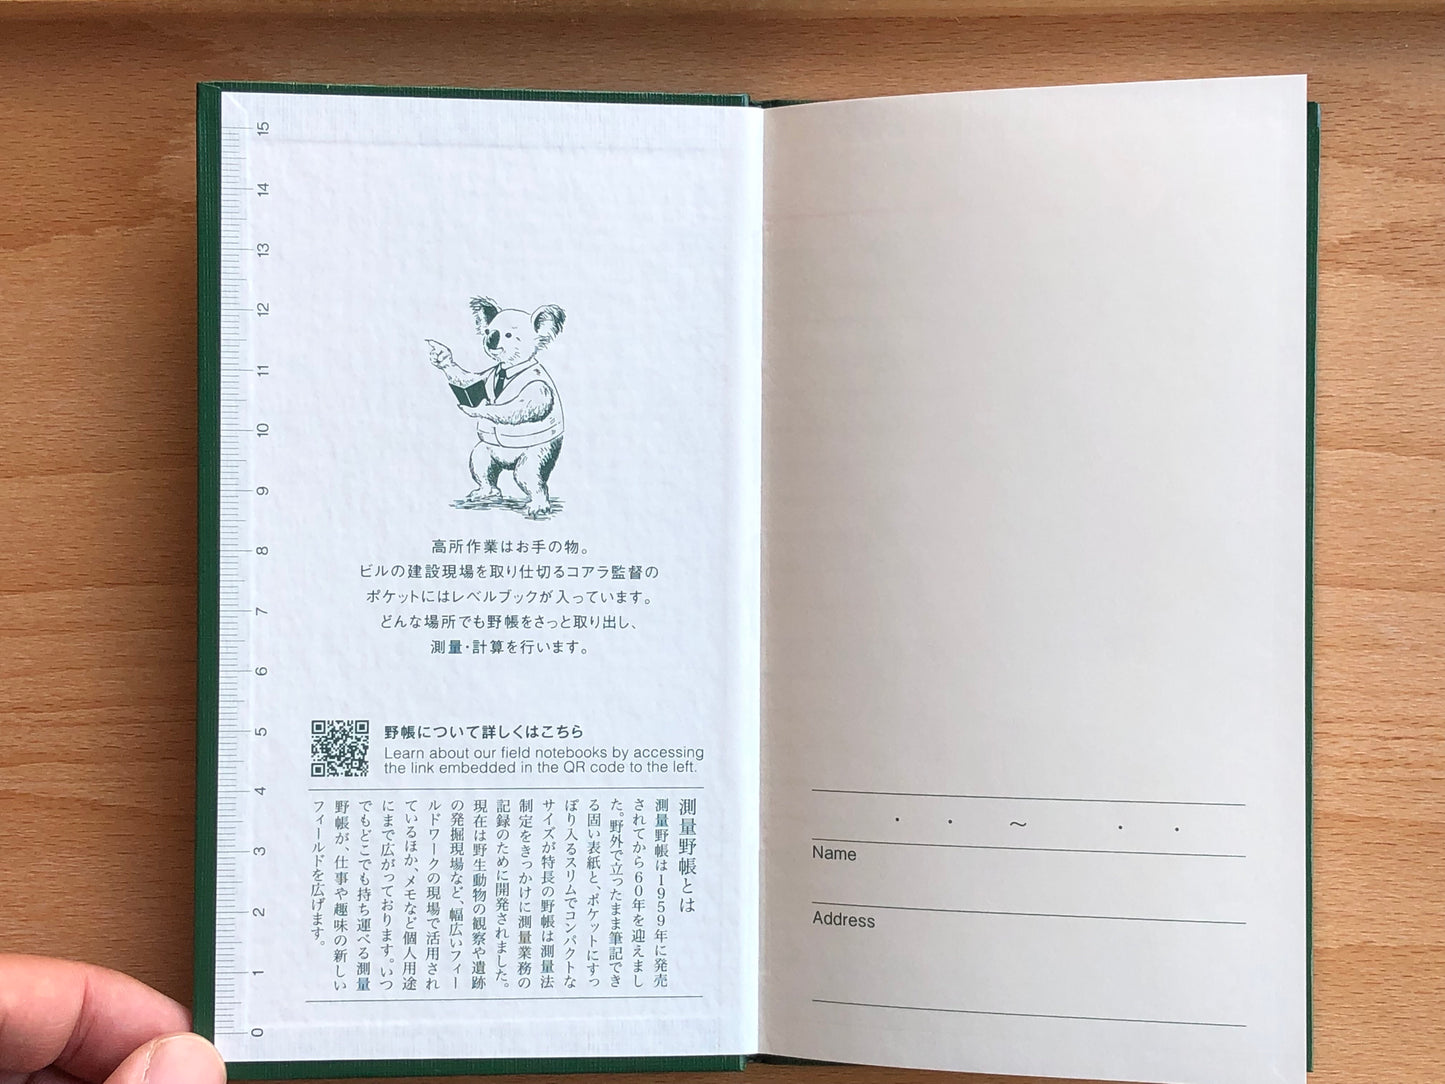 15
14
13
12
11
10
9
8
7
6
5
4
3
2
1
0
高所作業はお手の物。
ビルの建設現場を取り仕切るコアラ監督の
ポケットにはレベルブックが入っています。
どんな場所でも野帳をさっと取り出し、
測量・計算を行います。
野帳について詳しくはこちら
Learn about our field notebooks by accessing
the link embedded in the QR code to the left.
測量野帳とは
測量野帳は1959年に発売
されてから60年を迎えまし
た。野外で立ったまま筆記でき
る固い表紙と、ポケットにすっ
ぽり入るスリムでコンパクトな
サイズが特長の野帳は測量法
制定をきっかけに測量業務の
記録のために開発されました。
現在は野生動物の観察や遺跡
の発掘現場など、幅広いフィー
ルドワークの現場で活用され
ているほか、メモなど個人用途
にまで広がっております。いつ
でもどこでも持ち運べる測量
野帳が、仕事や趣味の新しい
フィールドを広げます。
・ ・ 〜 ・ ・
Name
Address